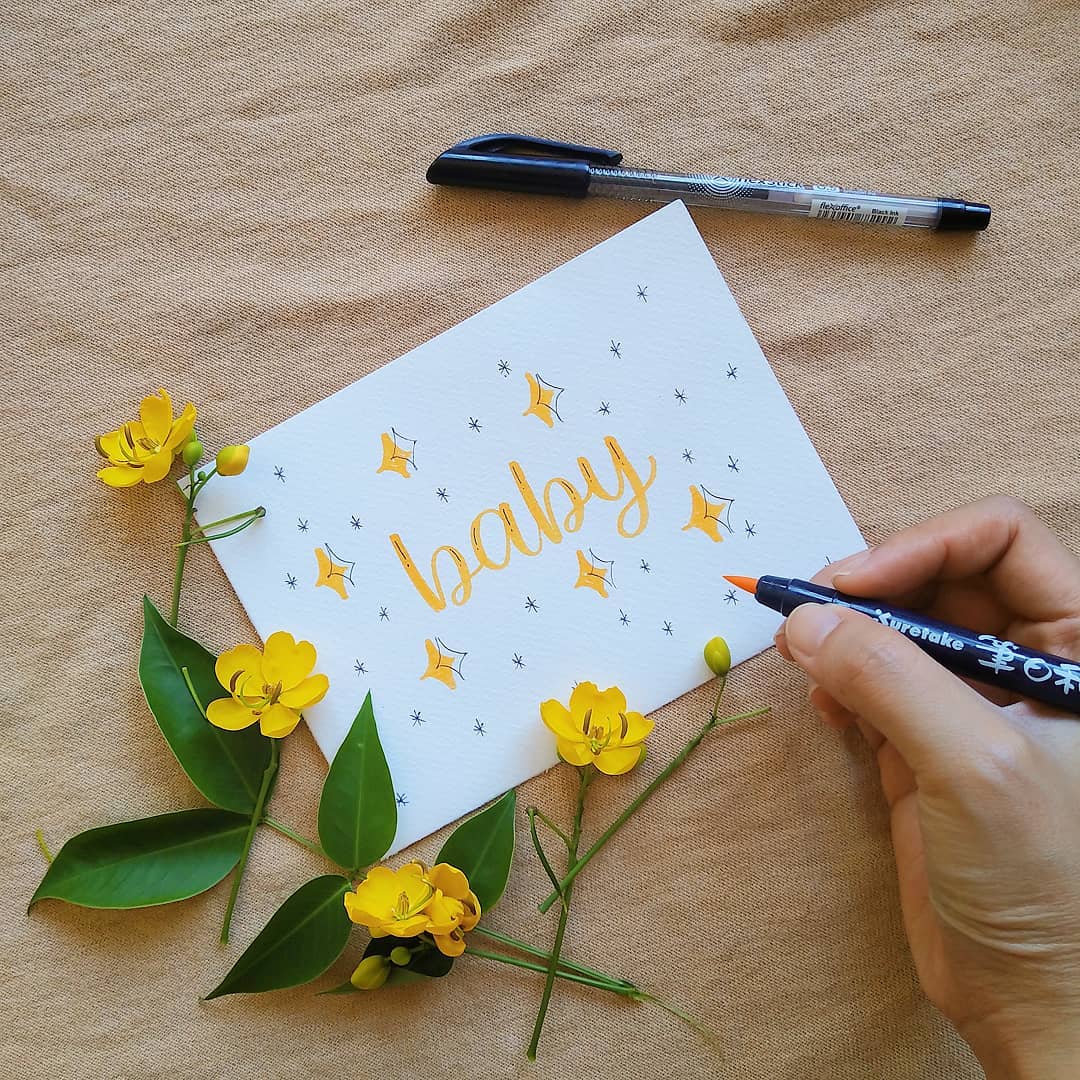 flexoffice® Black Ink
baby
Kuretake 筆日和